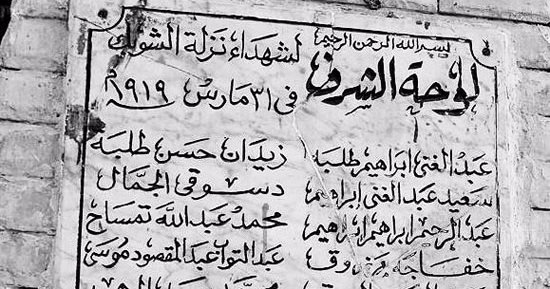 بسم الله الرحمن الرحيم
لوحة الشرف
لشهداء نزلة الشوبك
في ٣١ مارس ١٩١٩م
عبد الغنى ابراهيم طلبه
سعيد عبد الغنى ابراهيم
عبد الرحمن ابراهيم ابراهيم
خفاجة مرزوق
زيدان حسن طلبه
دسوقى الجمال
محمد عبد الله تمساح
عبد التواب عبد المقصود موسى